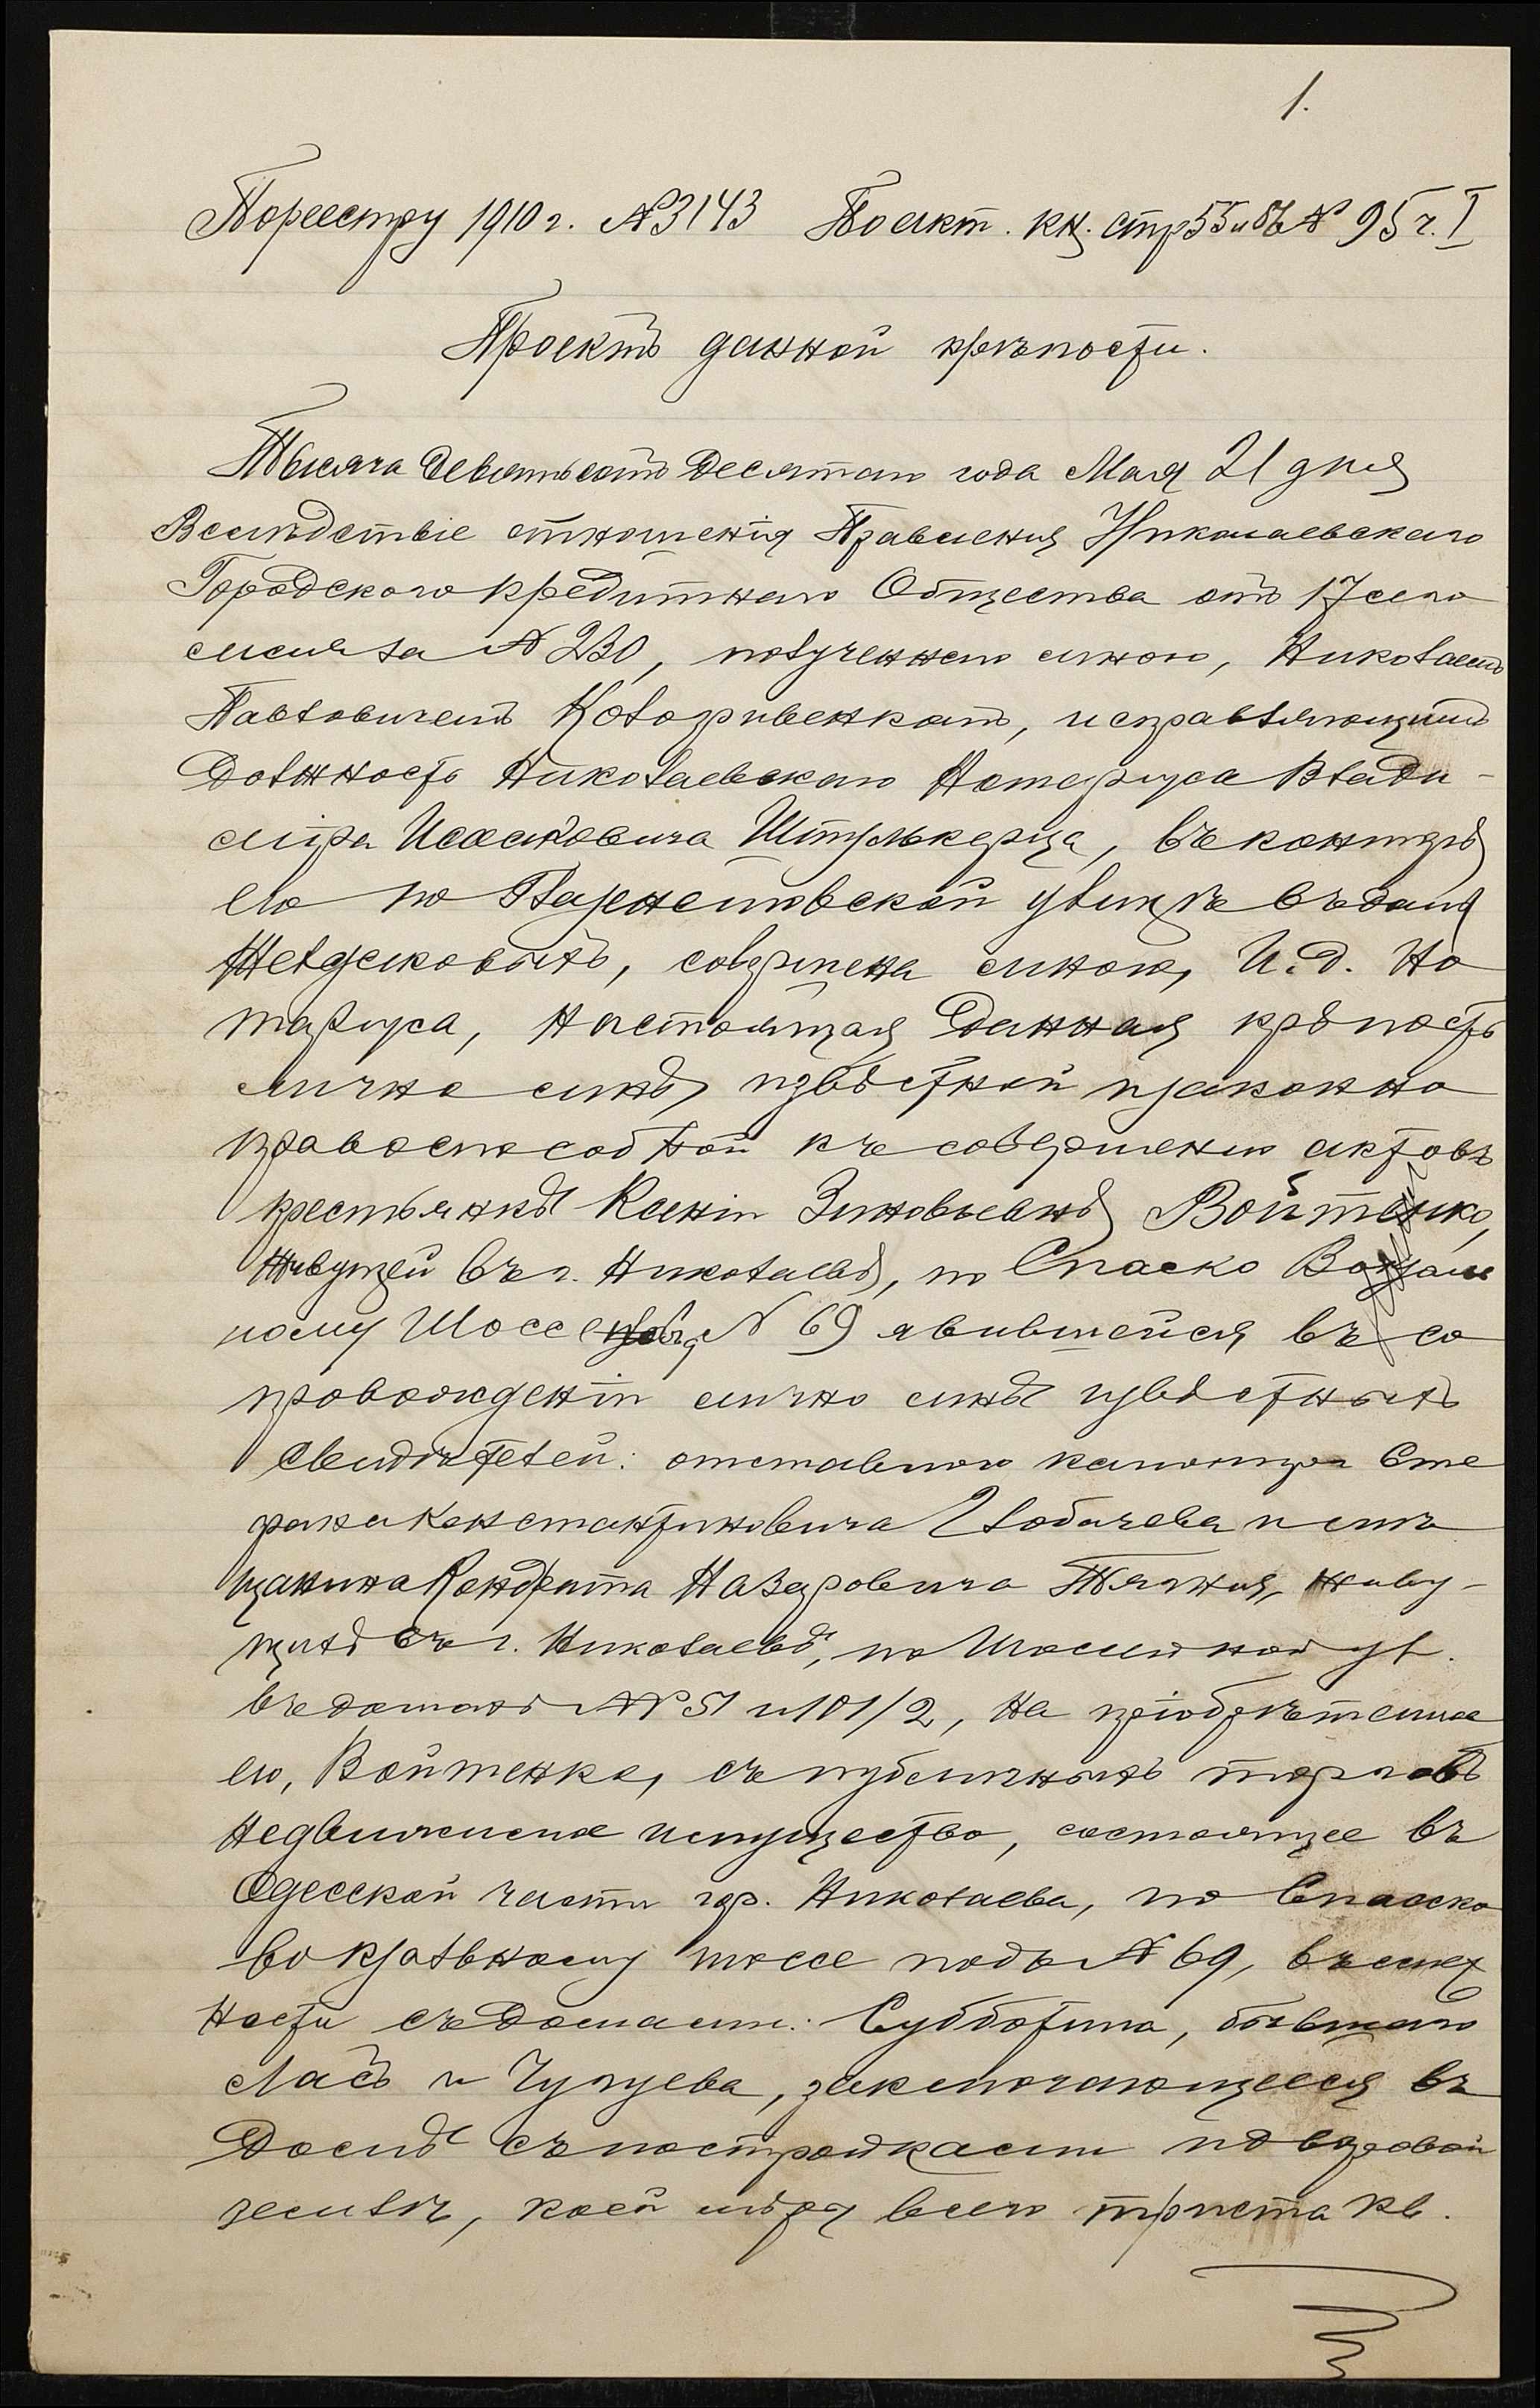 1.
По реестру 1910 г. № 3143 По акт. кн. стр 55 и 56 № 95 ч. I
Проектъ данной крѣпости.
Тысяча девятьсотъ десятаго года Мая 21 дня
Вслѣдствіе отношенія Правленія Николаевскаго
Городского Кредитнаго Общества отъ 17 сего
мѣсяца № 230, полученнаго мною, Николаемъ
Павловичемъ исправляющимъ
должность Николаевскаго Нотаріуса Влади-
міра Исааковича въ конторѣ
его по улицѣ въ домѣ
совершена мною, И.д. Но
таріуса, настоящая данная крѣпость
лично мнѣ извѣстной и законно
правоспособной къ совершенію актовъ
крестьянкѣ Ксеніи Зиновьевнѣ Войтенко,
живущей въ г. Николаевѣ, по Спаско Вокзаль
ному Шоссе № 69 явившейся въ со
провожденіи лично мнѣ извѣстныхъ
свидѣтелей: отставного Сте
фана Константиновича Лобачева и мѣ
щанина Кондрата Назаровича живу-
щихъ въ г. Николаевѣ, по ул.
въ домахъ №№ 51 и 101/2, на пріобрѣтенное
ею, Войтенко, съ публичныхъ торговъ
недвижимое имущество, состоящее въ
Одесской части гор. Николаева, по Спаско
вокзальному шоссе подъ № 69, въ смеж
ности съ домами: Субботина, бывшаго
Ласъ и Чугуева, заключающееся въ
домѣ съ постройками и дворовой
землѣ, коей мѣрою всего триста кв.